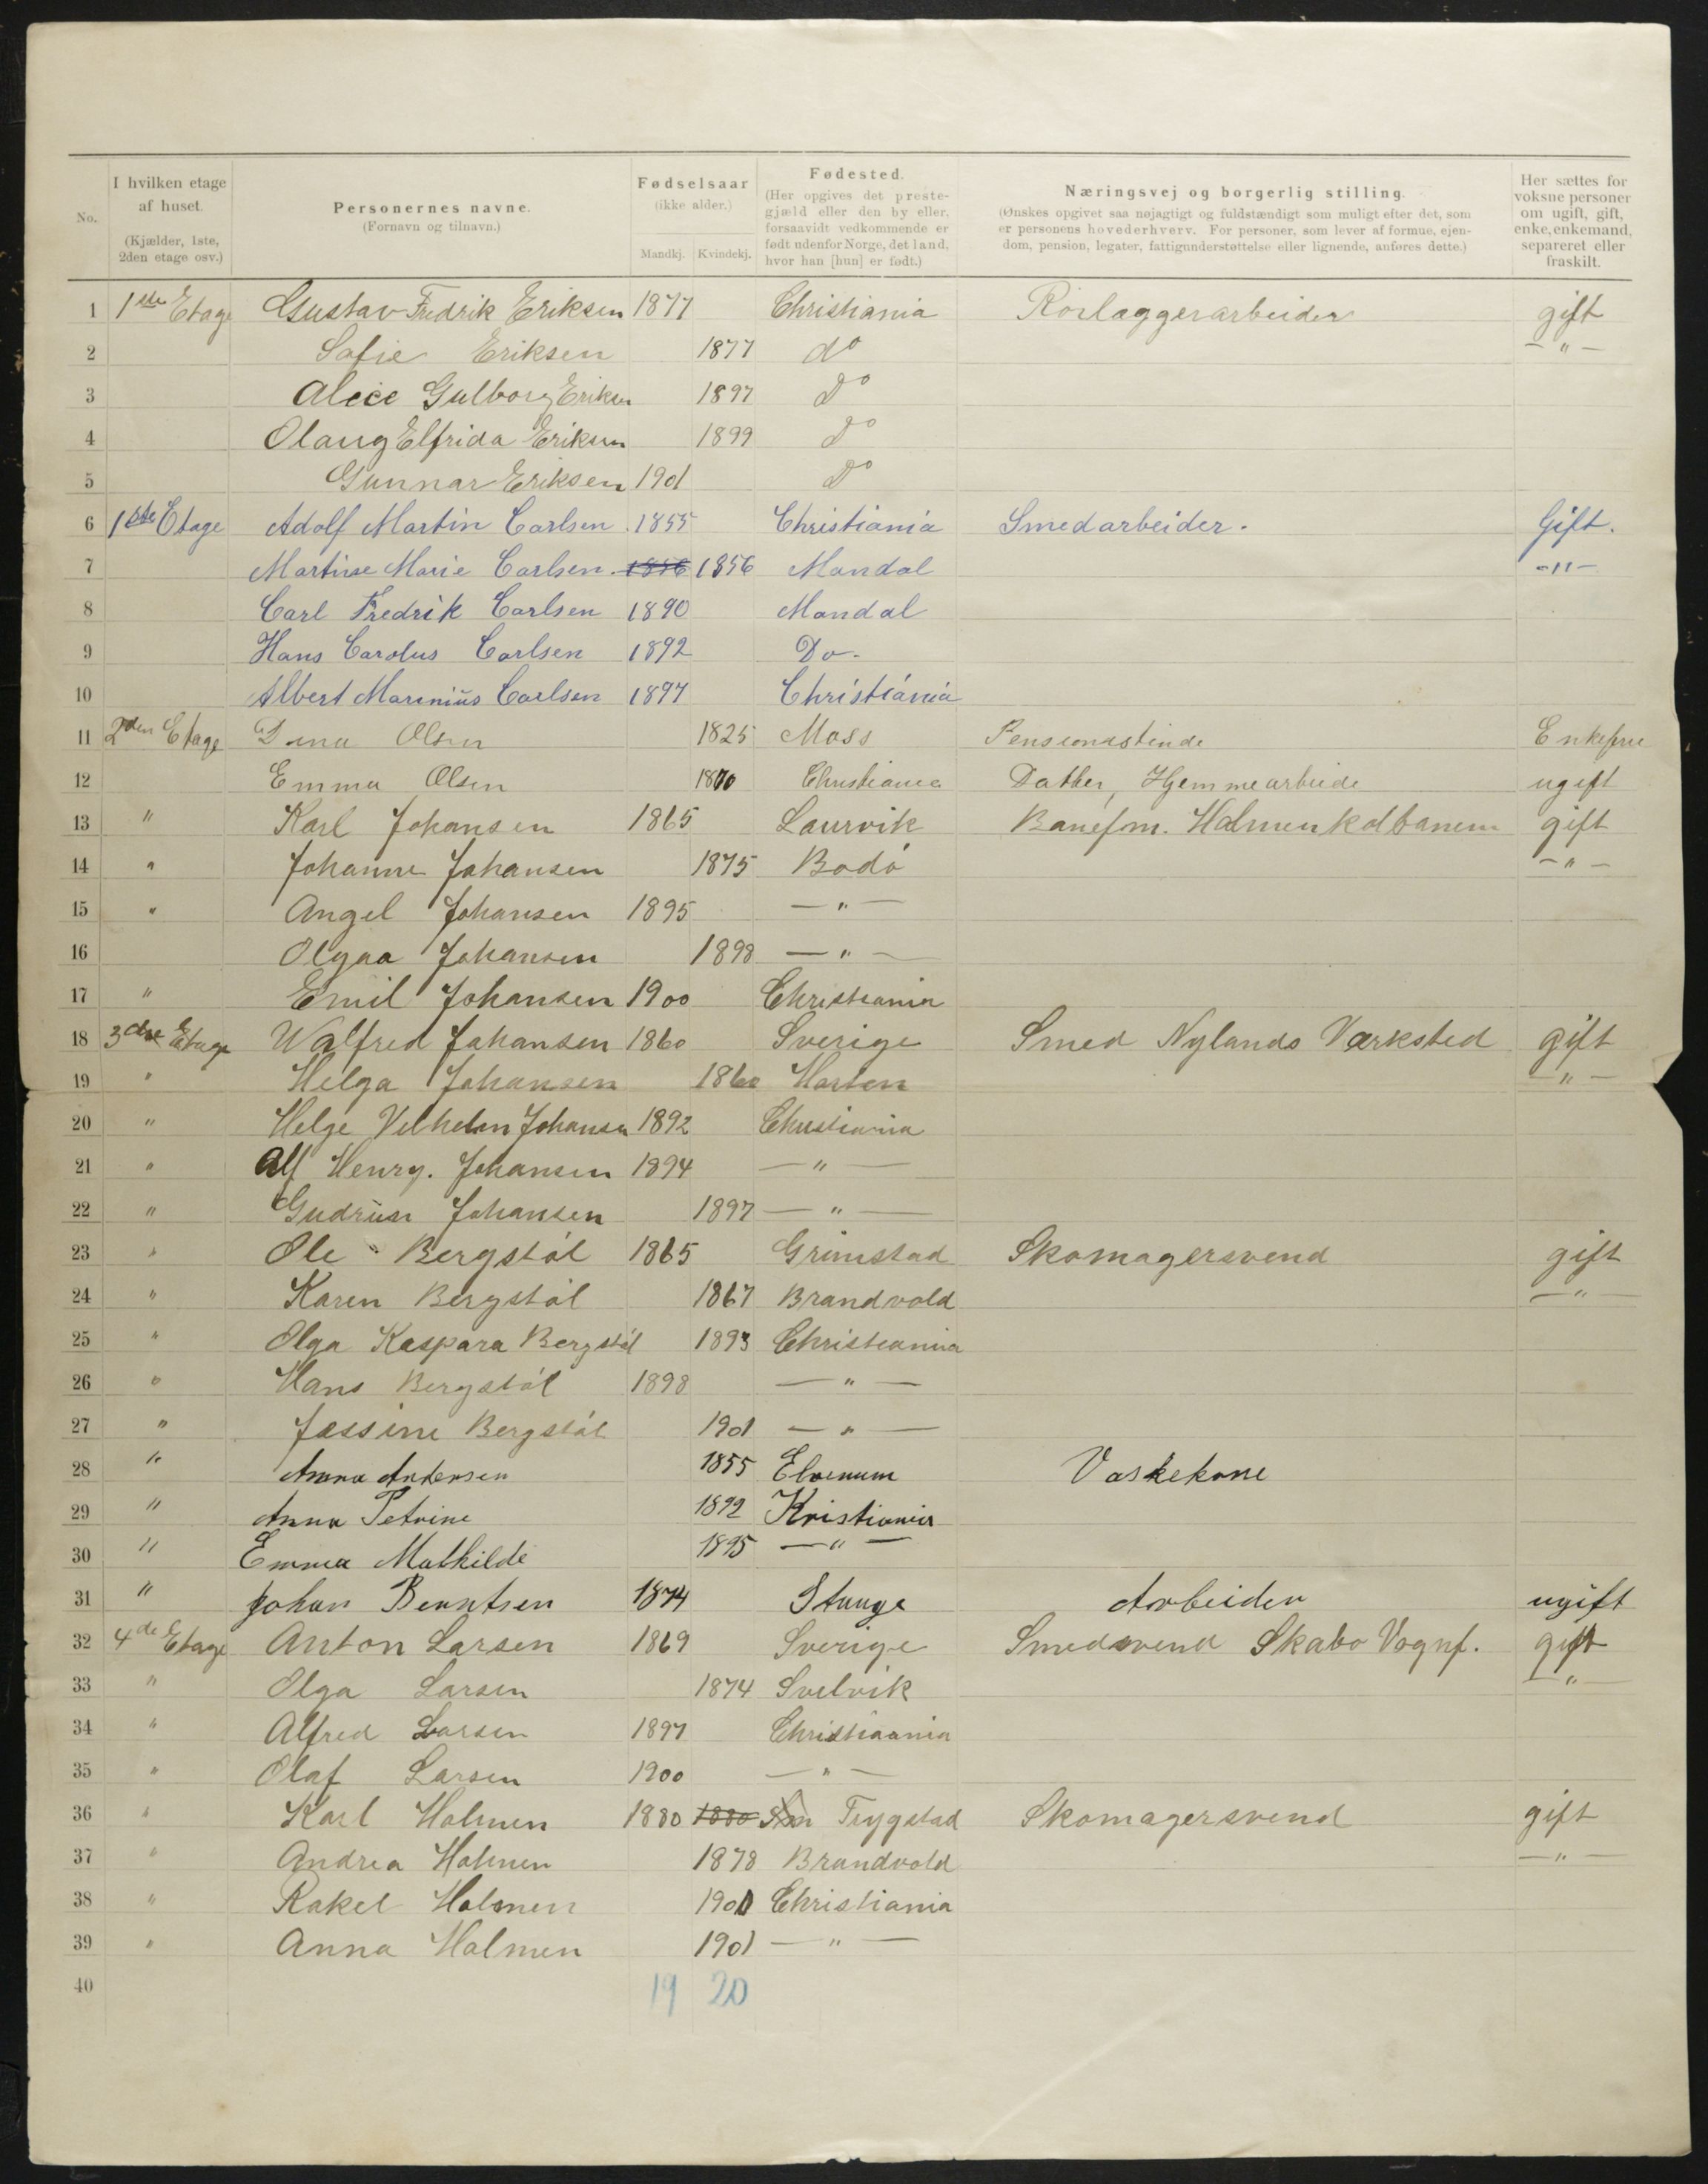 No.
I hvilken etage af huset. (Kjælder, 1ste, 2den etage osv.)
Personernes navne. (Fornavn og tilnavn.)
Fødselsaar (ikke alder.) Mandkj. Kvindekj.
Fødested. (Her opgives det prestegjæld eller den by eller, forsaavidt vedkommende er født udenfor Norge, det land, hvor han [hun] er født.)
Næringsvej og borgerlig stilling. (Ønskes opgivet saa nøjagtigt og fuldstændigt som muligt efter det, som er personens hovederhverv. For personer, som lever af formue, ejendom, pension, legater, fattigunderstøttelse eller lignende, anføres dette.)
Her sættes for voksne personer om ugift, gift, enke, enkemand, separeret eller fraskilt.
1 1ste Etage Gustav Fredrik Eriksen 1877 Christiania Rörlæggerarbeider gift
2 Sofie Eriksen 1877 do —"—
3 Alice Gulborg Eriksen 1897 Do
4 Olaug Elfrida Eriksen 1899 Do
5 Gunnar Eriksen 1901 Do
6 1ste Etage Adolf Martin Carlsen 1855 Christiania Smedarbeider. Gift.
7 Martine Marie Carlsen 1856 1856 Mandal -"-
8 Carl Fredrik Carlsen 1890 Mandal
9 Hans Carolus Carlsen 1892 Do.
10 Albert Marinius Carlsen 1897 Christiania
11 2den Etage Dina Olsen 1825 Moss Pensionistinde Enkefrue
12 Emma Olsen 1870 Christiania Datter, Hjemmearbeide ugift
13 " Karl Johansen 1865 Laurvik Banefm. Holmenkolbanen gift
14 " Johanne Johansen 1875 Bodö —"—
15 " Angel Johansen 1895 —"—
16 Olgaa Johansen 1898 —"—
17 " Emil Johansen 1900 Christiania
18 3die Etage Walfred Johansen 1860 Sverige Smed Nylands Værksted gift
19 " Helga Johansen 1860 Horten —"—
20 " Helge Vilhelm Johansen 1892 Christiania
21 " Alf Henry. Johansen 1894 —"—
22 " Gudrun Johansen 1897 —"—
23 " Ole Bergstöl 1865 Grimstad Skomagersvend gift
24 " Karen Bergstöl 1867 Brandvold —"—
25 " Olga Kaspara Bergstöl 1893 Christiania
26 " Hans Bergstöl 1898 —"—
27 " Jossine Bergstöl 1901 —"—
28 " Anna Andersen 1855 Elverum Vaskekone
29 " Anna Petrine 1892 Kristiania
30 " Emma Mathilde 1895 —"—
31 " Johan Berntsen 1874 Stange Arbeider ugift
32 4de Etage Anton Larsen 1869 Sverige Smedsvend Skabo Vognf. gift
33 " Olga Larsen 1874 Svelvik —"—
34 " Alfred Larsen 1897 Christiaania
35 " Olaf Larsen 1900 —"—
36 " Karl Holmen 1880 1880 Trygstad Skomagersvend gift
37 " Andrea Holmen 1878 Brandvold —"—
38 " Rakel Holmen 1900 Christiania
39 " Anna Holmen 1901 —"—
40 19 20